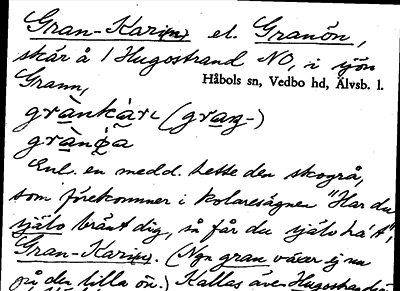 Gran-Kari(n) el. Granön,
skär å / Hugostrand NO, i sjön
Grann,
Håbols sn, Vedbo hd, Älvsb. l.
grànkàrɩ (gran-)
Enl. en medd. hette den skogrå,
som förekommer i kolaresägnen "Har du
själv bränt dig, så får du själv ha't",
Gran-Kari(n). (Ngn gran växer ej nu
på den lilla ön.) Kallas även